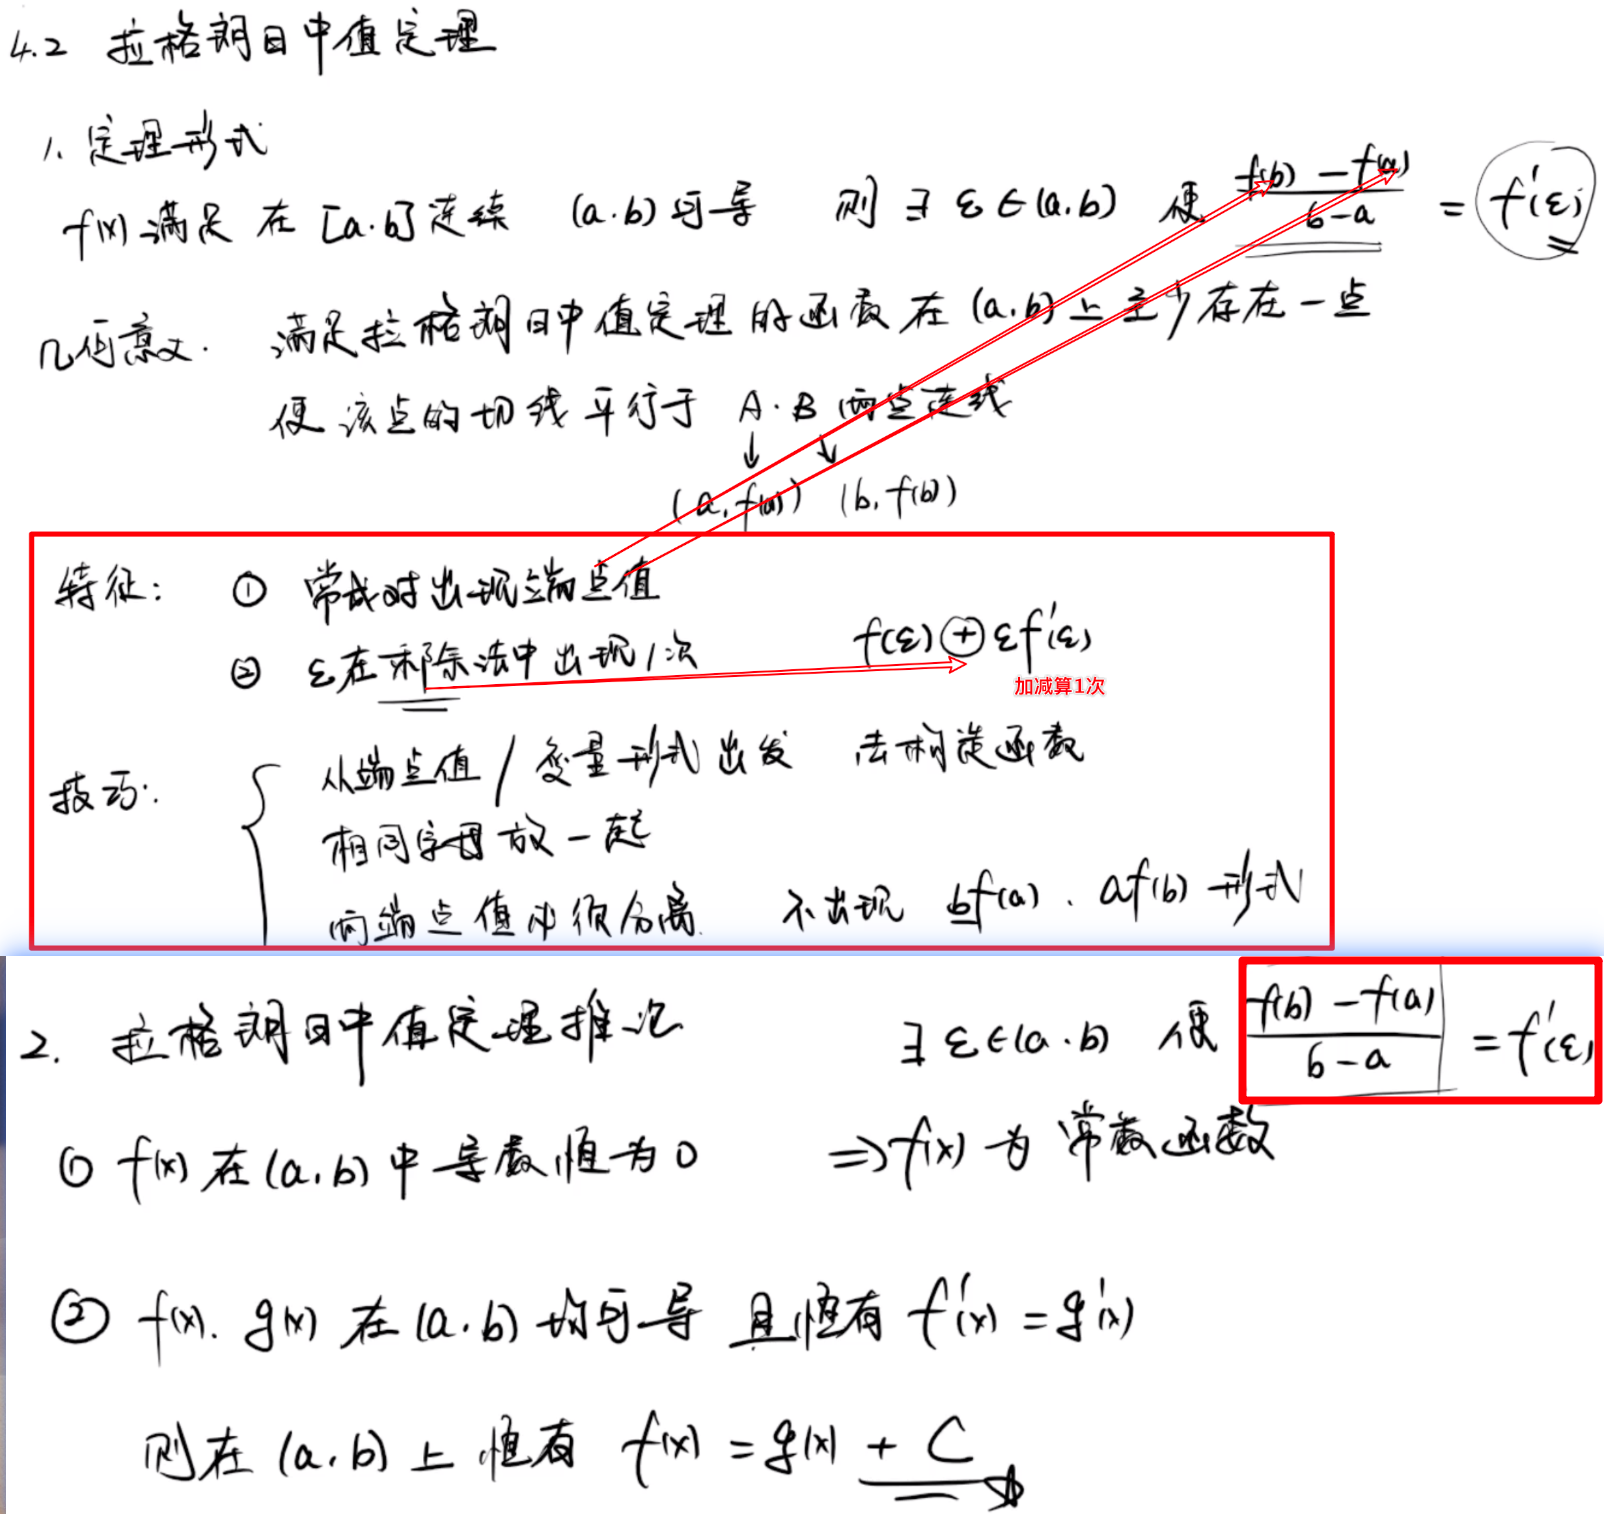 4.2 拉格朗日中值定理
1. 定理形式
f(x)满足 在 [a.b]连续 (a.b)可导 则 ∃ ε∈(a.b) 使 \frac{f(b)-f(a)}{b-a} = f'(ε)
几何意义. 满足拉格朗日中值定理的函数在(a.b)上至少存在一点
使该点的切线平行于 A.B 两点连线
↓ ↓
(a,f(a)) (b,f(b))
特征: ① 常成对出现端点值
② ε在乘除法中出现1次 f(ε)⊕εf'(ε)
加减算1次
技巧: { 从端点值/变量形式出发 去构造函数
相同字母放一起
两端点值必须分离. 不出现 bf(a)、af(b)形式
2. 拉格朗日中值定理推论 ∃ ε∈(a.b) 使 \frac{f(b)-f(a)}{b-a} = f'(ε)
① f(x)在(a,b)中导数恒为0 ⇒f(x)为常数函数
② f(x). g(x) 在(a.b)均可导 且恒有 f'(x)=g'(x)
则在(a,b)上恒有 f(x)=g(x)+C